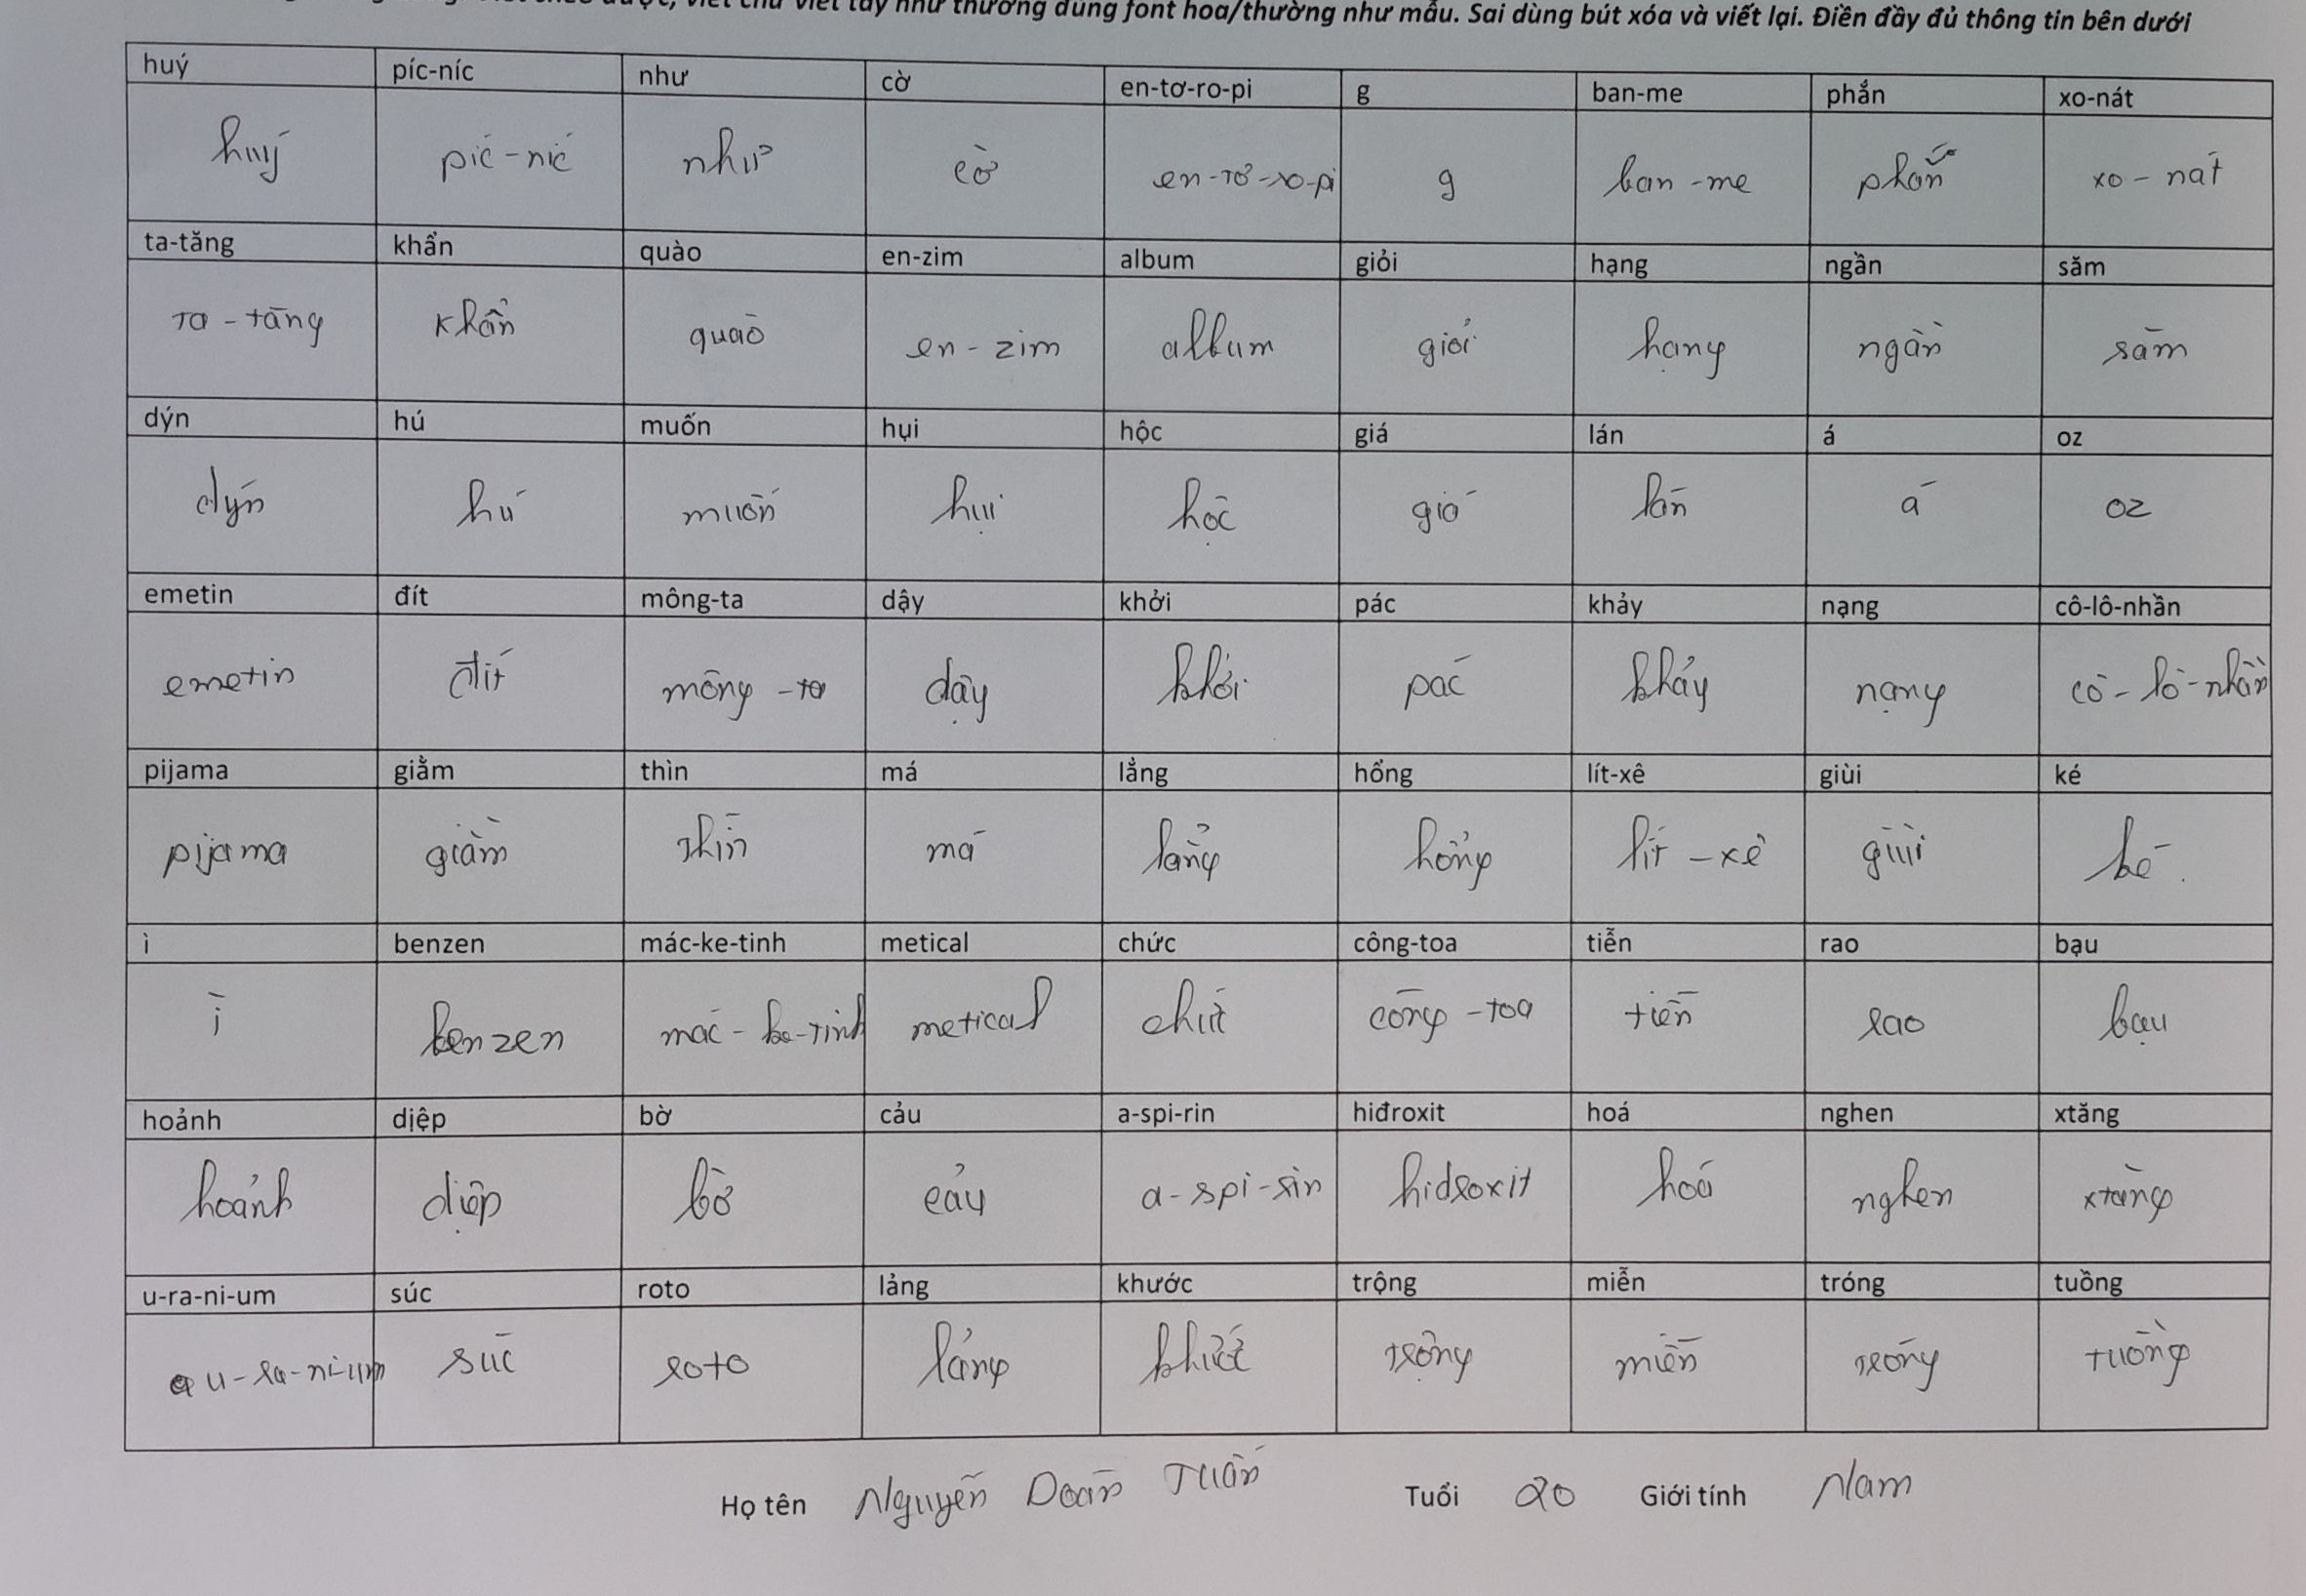 viết chữ viết tay như thường dùng font hoa/thường như mẫu. Sai dùng bút xóa và viết lại. Điền đầy đủ thông tin bên dưới
huý píc-níc như cờ en-tơ-ro-pi g ban-me phắn xo-nát
huý píc-níc như cờ en-tơ-ro-pi g ban-me phắn xo-nát
ta-tăng khẩn quào en-zim album giỏi hạng ngần săm
ta-tăng khẩn quào en-zim album giỏi hạng ngần săm
dýn hú muốn hụi hộc giá lán á oz
dýn hú muốn hụi hộc giá lán á oz
emetin đít mông-ta dậy khởi pác khảy nạng cô-lô-nhần
emetin đít mông-ta dậy khởi pác khảy nạng cô-lô-nhần
pijama giằm thìn má lẳng hổng lít-xê giùi ké
pijama giằm thìn má lẳng hổng lít-xê giùi ké
ì benzen mác-ke-tinh metical chức công-toa tiễn rao bạu
ì benzen mác-ke-tinh metical chức công-toa tiễn rao bạu
hoảnh diệp bờ cảu a-spi-rin hiđroxit hoá nghen xtăng
hoảnh diệp bờ cảu a-spi-rin hidroxit hoá nghen xtăng
u-ra-ni-um súc roto lảng khước trộng miễn tróng tuồng
u-ra-ni-um súc roto lảng khước trộng miễn tróng tuồng
Họ tên Nguyễn Doãn Tuấn Tuổi 20 Giới tính Nam